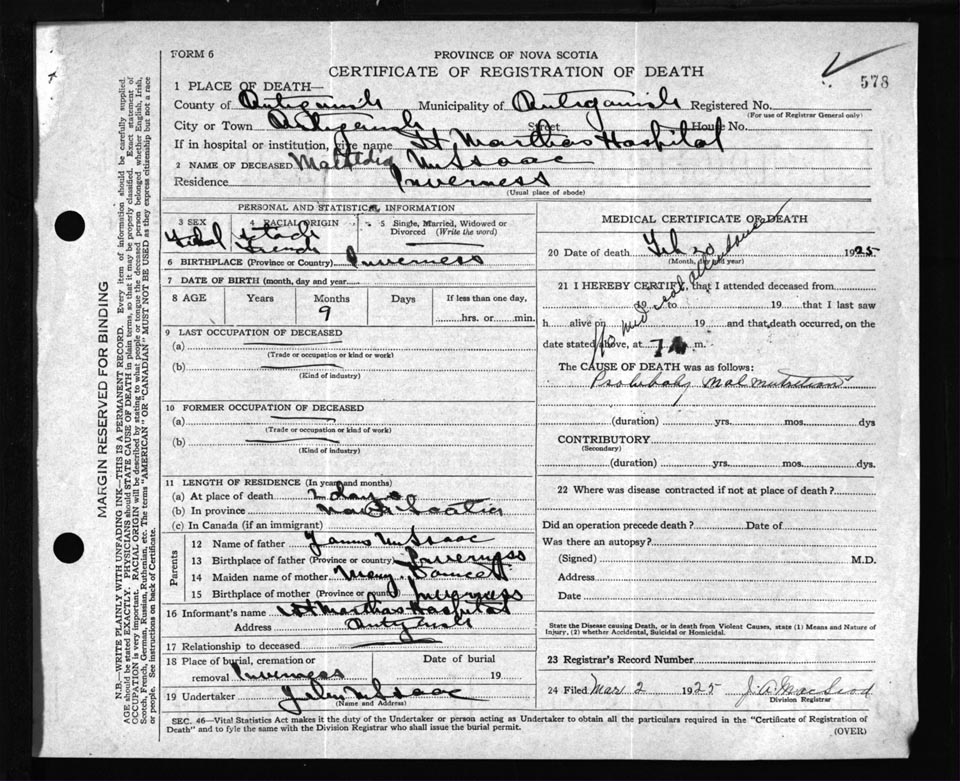 FORM 6
PROVINCE OF NOVA SCOTIA
CERTIFICATE OF REGISTRATION OF DEATH
578
1 PLACE OF DEATH—
County of Antigonish Municipality of Antigonish Registered No.
(For use of Registrar General only)
City or Town Antigonish Street House No.
If in hospital or institution, give name St Marthas Hospital
2 NAME OF DECEASED Matilda McIsaac
Residence Inverness
(Usual place of abode)
PERSONAL AND STATISTICAL INFORMATION
3 SEX 4 RACIAL ORIGIN 5 Single, Married, Widowed or Divorced (Write the word)
Scotch
French
6 BIRTHPLACE (Province or Country) Inverness
7 DATE OF BIRTH (month, day and year)
8 AGE Years Months Days If less than one day,
9 hrs. or min.
9 LAST OCCUPATION OF DECEASED
(a)
(Trade or occupation or kind or work)
(b)
(Kind of industry)
10 FORMER OCCUPATION OF DECEASED
(a)
(Trade or occupation or kind of work)
(b)
(Kind of industry)
11 LENGTH OF RESIDENCE (In years and months)
(a) At place of death 2 days
(b) In province Nova Scotia
(c) In Canada (if an immigrant)
Parents
12 Name of father James McIsaac
13 Birthplace of father (Province or country) Inverness
14 Maiden name of mother Mary Doucett
15 Birthplace of mother (Province or country) Inverness
16 Informant's name St Marthas Hospital
Address Antigonish
17 Relationship to deceased
18 Place of burial, cremation or removal Inverness Date of burial 19
19 Undertaker McIsaac
(Name and Address)
MEDICAL CERTIFICATE OF DEATH
20 Date of death Feb 20 1925
(Month, day and year)
21 I HEREBY CERTIFY, that I attended deceased from
19 to 19 that I last saw
h alive on 19 and that death occurred, on the
date stated above, at 7 m.
No medical attendance
The CAUSE OF DEATH was as follows:
Probably Mal nutrition
(duration) yrs. mos. dys
CONTRIBUTORY
(Secondary)
(duration) yrs. mos. dys.
22 Where was disease contracted if not at place of death?
Did an operation precede death? Date of
Was there an autopsy?
(Signed) M.D.
Address
Date
State the Disease causing Death, or in death from Violent Causes, state (1) Means and Nature of Injury, (2) whether Accidental, Suicidal or Homicidal.
23 Registrar's Record Number
24 Filed Mar 2 1925 J. A. MacLeod
Division Registrar
SEC. 46—Vital Statistics Act makes it the duty of the Undertaker or person acting as Undertaker to obtain all the particulars required in the "Certificate of Registration of
Death" and to fyle the same with the Division Registrar who shall issue the burial permit.
(OVER)
MARGIN RESERVED FOR BINDING
N.B.—WRITE PLAINLY WITH UNFADING INK—THIS IS A PERMANENT RECORD. Every item of information should be carefully supplied.
AGE should be stated EXACTLY. PHYSICIANS should STATE CAUSE OF DEATH in plain terms, so that it may be properly classified. Exact statement of
OCCUPATION is very important. RACIAL ORIGIN will be described by stating to what people or tongue the deceased person belonged whether English, Irish,
Scotch, French, German, Russian, Ruthenian, etc. The terms "AMERICAN" OR "CANADIAN" MUST NOT BE USED as they express citizenship but not a race
or people. See instructions on back of Certificate.